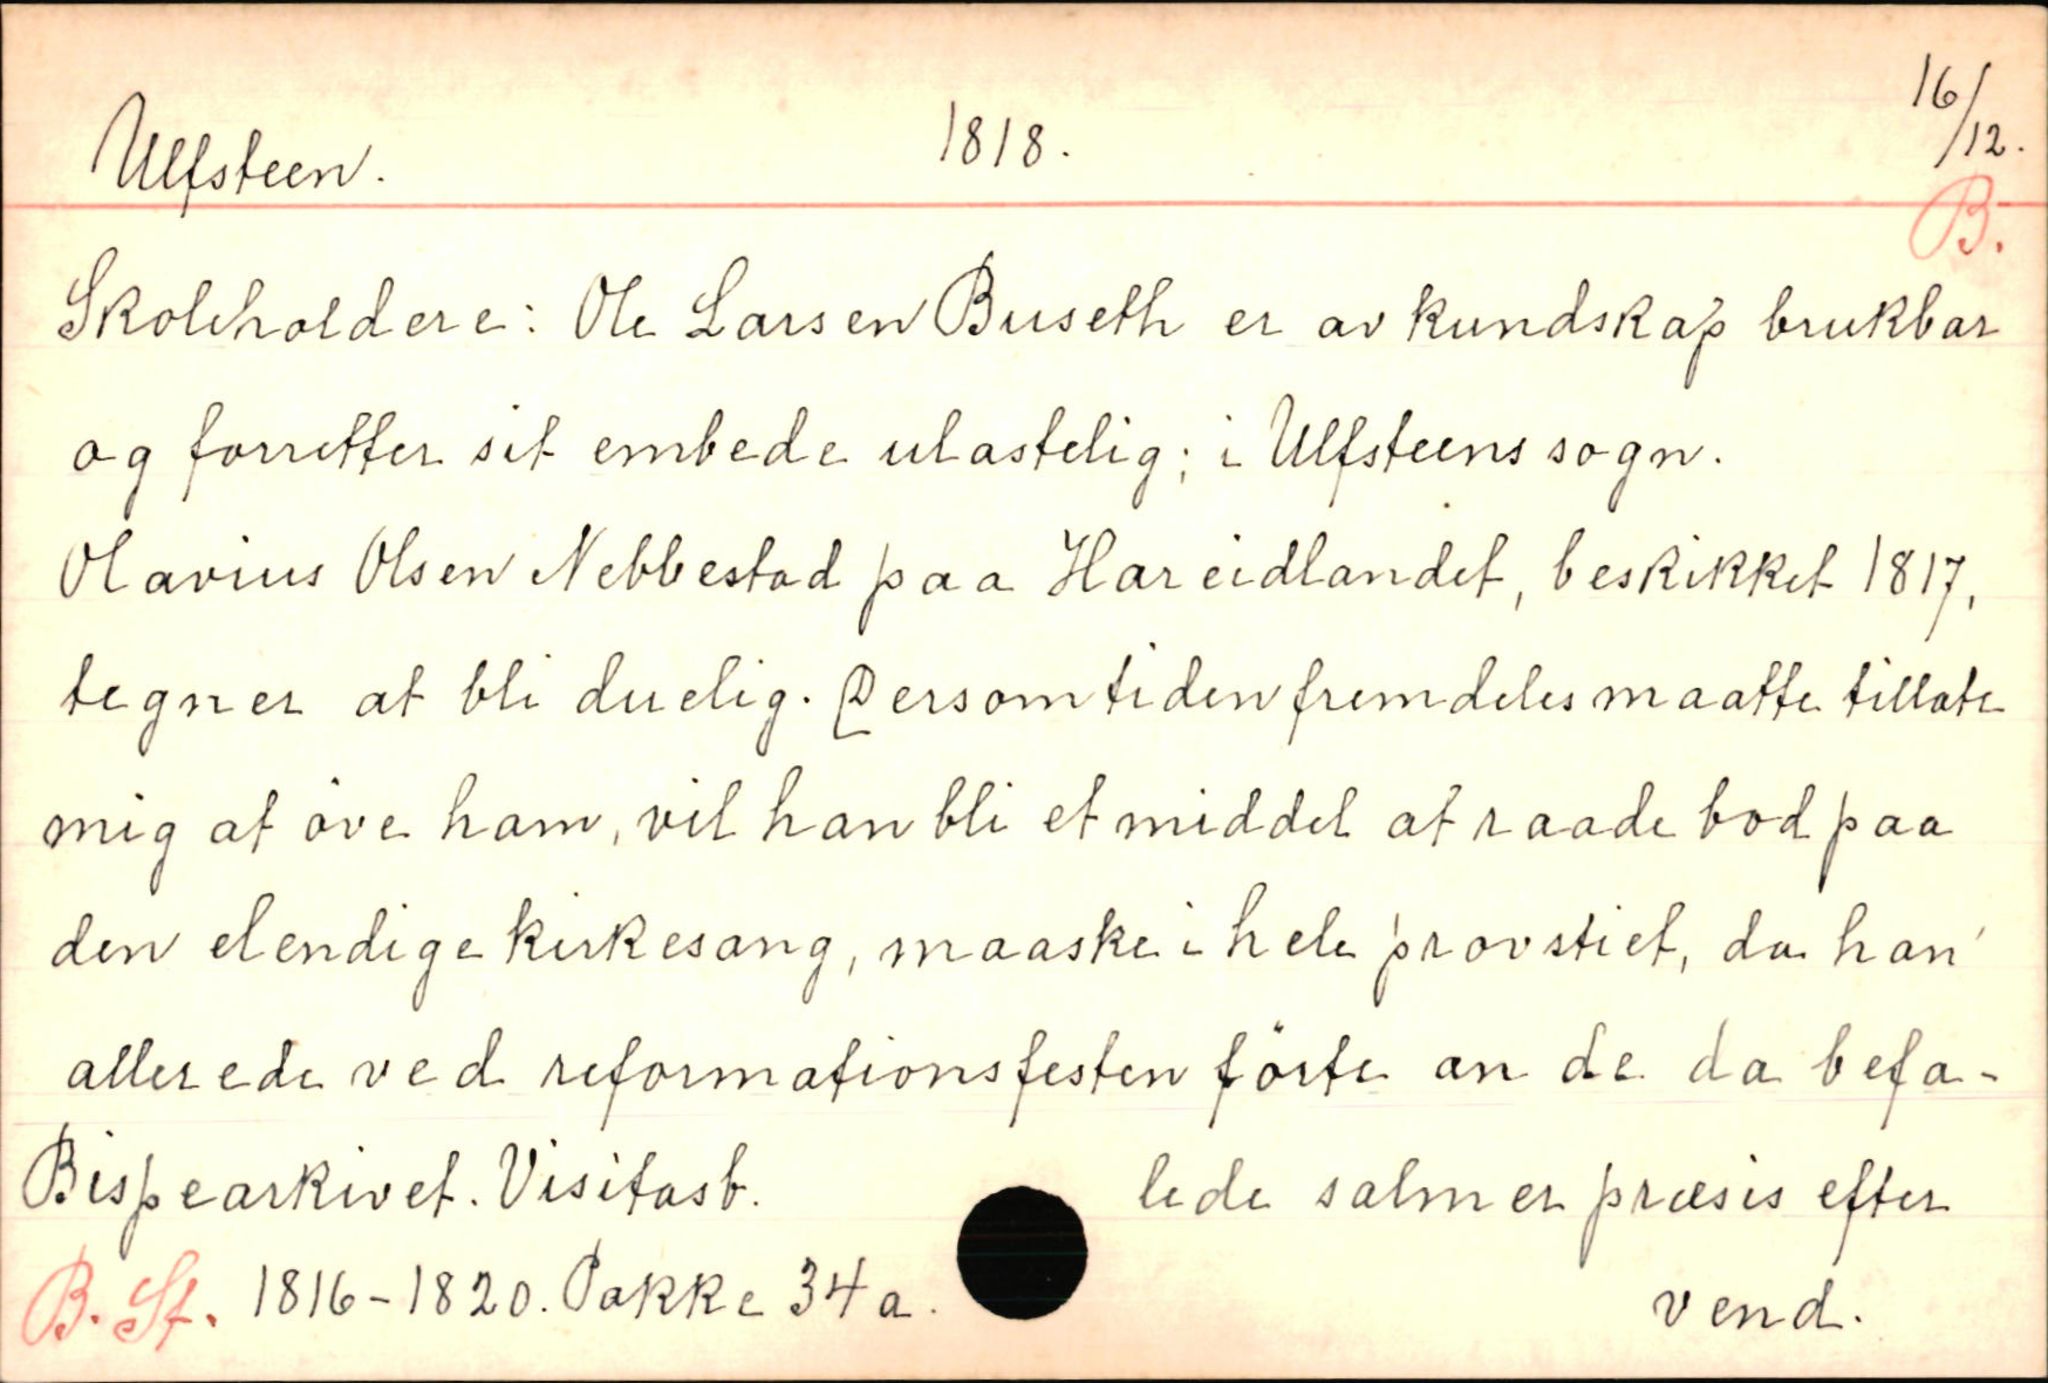 Ulfsteen. 1818. 16/12.
B.
Skoleholdere: Ole Larsen Buseth er av kundskap brukbar
og forretter sit embede ulastelig; i Ulfsteens sogn.
Olavius Olsen Nebbestad paa Hareidlandet, beskikket 1817,
tegner at bli duelig. Dersom tiden fremdeles maatte tillate
mig at öve ham, vil han bli et middel at raade bod paa
den elendige kirkesang, maaske i hele provstiet, da han
allerede ved reformationsfesten förte an de da befa-
Bispearkivet. Visitasb. lede salmer præsis efter
B. St. 1816-1820. Pakke 34a. vend.